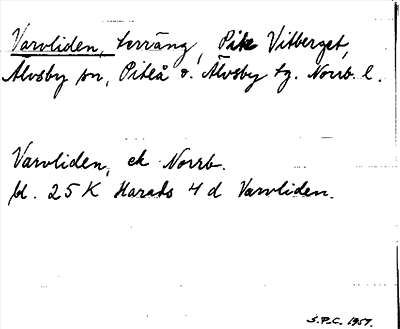 Varvliden, terräng, Pitk Vitberget,
Älvsby sn, Piteå o. Älvsby tg. Norrb. l.
Varvliden, ek Norrb.
bl. 25 K Harads 4 d Varvliden.
S.P.C. 1957.